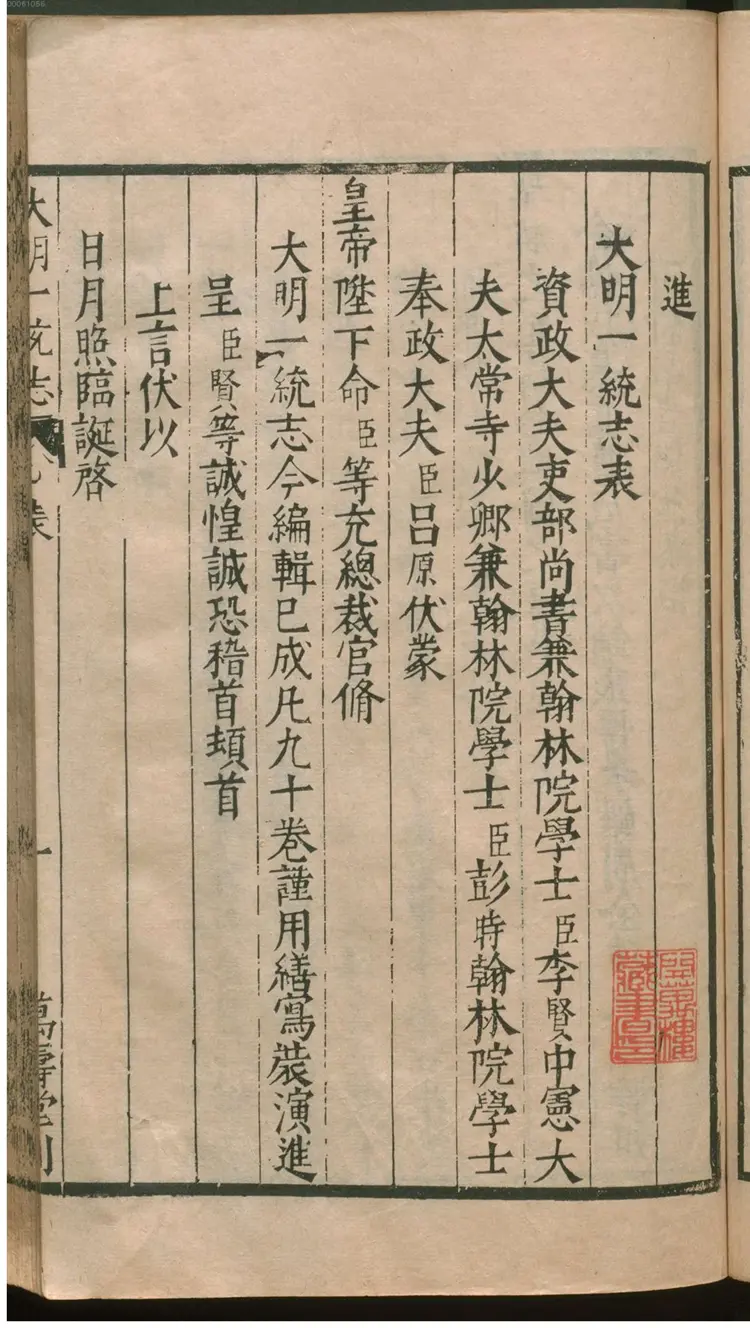 00061086
進
大明一統志表
資政大夫吏部尚書兼翰林院學士臣李賢中憲大
夫太常寺少卿兼翰林院學士臣彭時翰林院學士
奉政大夫臣呂原伏蒙
皇帝陛下命臣等充總裁官脩
大明一統志今編輯已成凡九十卷謹用繕寫裝演進
呈臣賢等誠惶誠恐稽首頓首
上言伏以
日月照臨誕啓
大明一統志 表 一 萬壽堂刊
藏書印